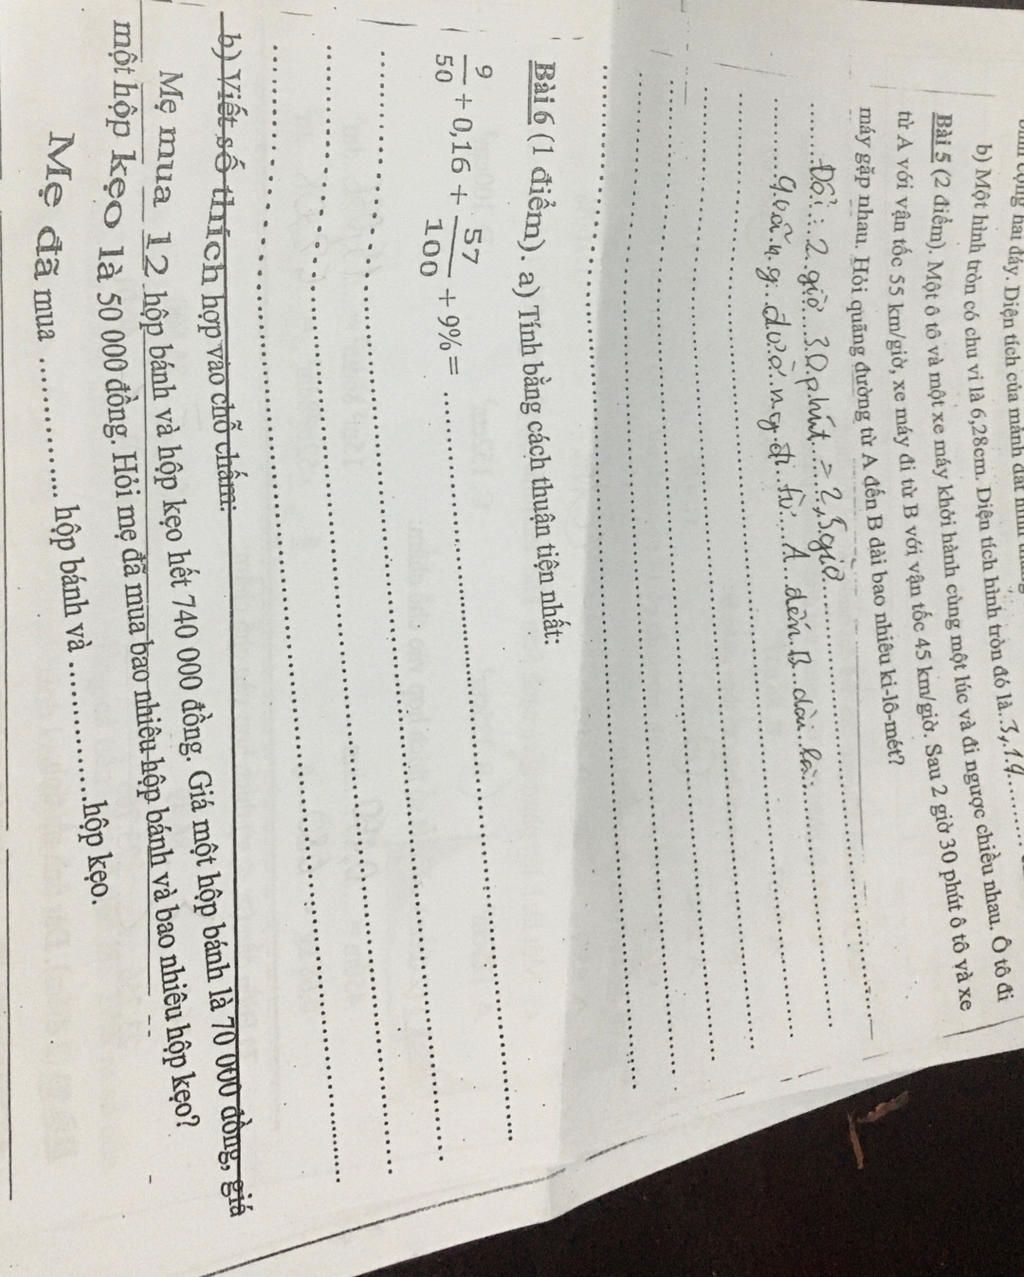 b) Một hình tròn có chu vi là 6,28cm. Diện tích hình tròn đó là..3,14..........
Bài 5 (2 điểm). Một ô tô và một xe máy khởi hành cùng một lúc và đi ngược chiều nhau. Ô tô đi
từ A với vận tốc 55 km/giờ, xe máy đi từ B với vận tốc 45 km/giờ. Sau 2 giờ 30 phút ô tô và xe
máy gặp nhau. Hỏi quãng đường từ A đến B dài bao nhiêu ki-lô-mét?
Đổi: 2 giờ 30 phút = 2,5 giờ
quãng đường đi từ A đến B dài
Bài 6 (1 điểm). a) Tính bằng cách thuận tiện nhất:
9/50 + 0,16 + 57/100 + 9% = ..........
b) Viết số thích hợp vào chỗ chấm:
Mẹ mua 12 hộp bánh và hộp kẹo hết 740 000 đồng. Giá một hộp bánh là 70 000 đồng, giá
một hộp kẹo là 50 000 đồng. Hỏi mẹ đã mua bao nhiêu hộp bánh và bao nhiêu hộp kẹo?
Mẹ đã mua .............. hộp bánh và ..............hộp kẹo.